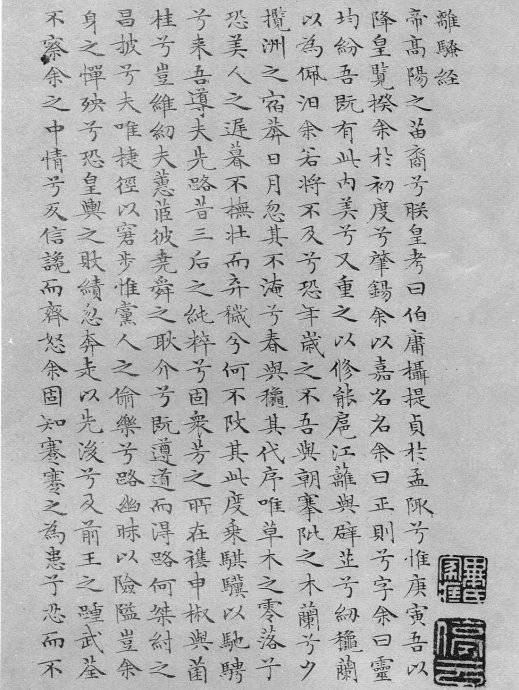 離騷経
帝髙陽之苗裔兮朕皇考曰伯庸攝提貞於孟陬兮惟庚寅吾以
降皇覽揆余於初度兮肇錫余以嘉名名余曰正則兮字余曰靈
均紛吾既有此内美兮又重之以修能扈江蘺與辟芷兮紉龝蘭
以為佩汨余若將不及兮恐年歲之不吾與朝搴阰之木蘭兮夕
攬洲之宿莽日月忽其不淹兮春與龝其代序唯草木之零落兮
恐美人之遲暮不撫壯而弃穢兮何不改其此度乘騏驥以馳騁
兮来吾導夫先路昔三后之純粹兮固衆芳之所在襍申椒與菌
桂兮豈維紉夫蕙茝彼堯舜之耿介兮既遵道而得路何桀紂之
昌披兮夫唯捷徑以窘步惟黨人之偷樂兮路幽昧以險隘豈余
身之憚殃兮恐皇輿之敗績忽奔走以先後兮及前王之踵武荃
不察余之中情兮反信讒而齊怒余固知謇謇之為患兮忍而不
停云